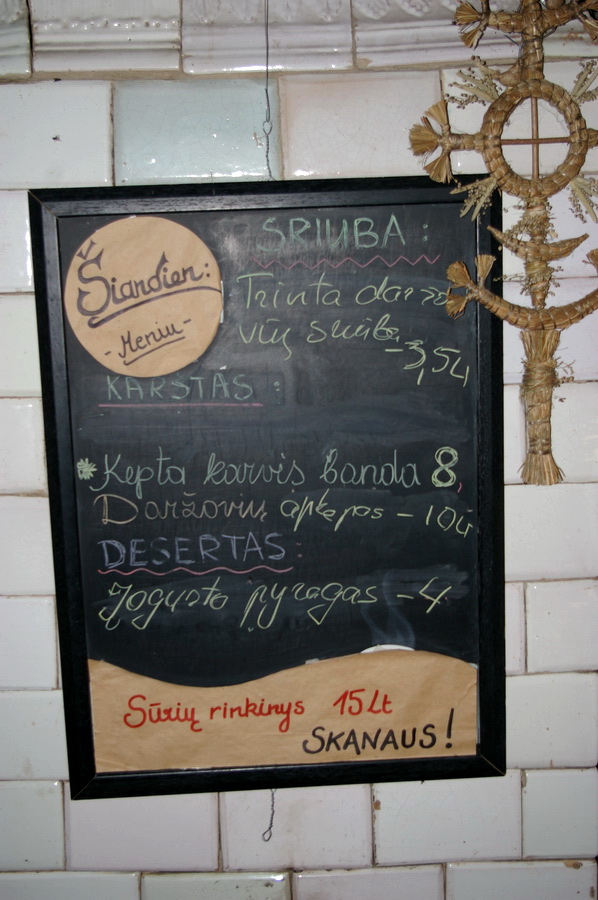 Šiandien:
-Meniu-
SRIUBA:
Trinta daržo
vių sriuba
-3,5Lt
KARSTAS:
*Kepta karvis banda 8,
Daržovių apkepas - 10Lt
DESERTAS:
Jogurto pyragas -4
Sūrių rinkinys 15Lt
SKANAUS!